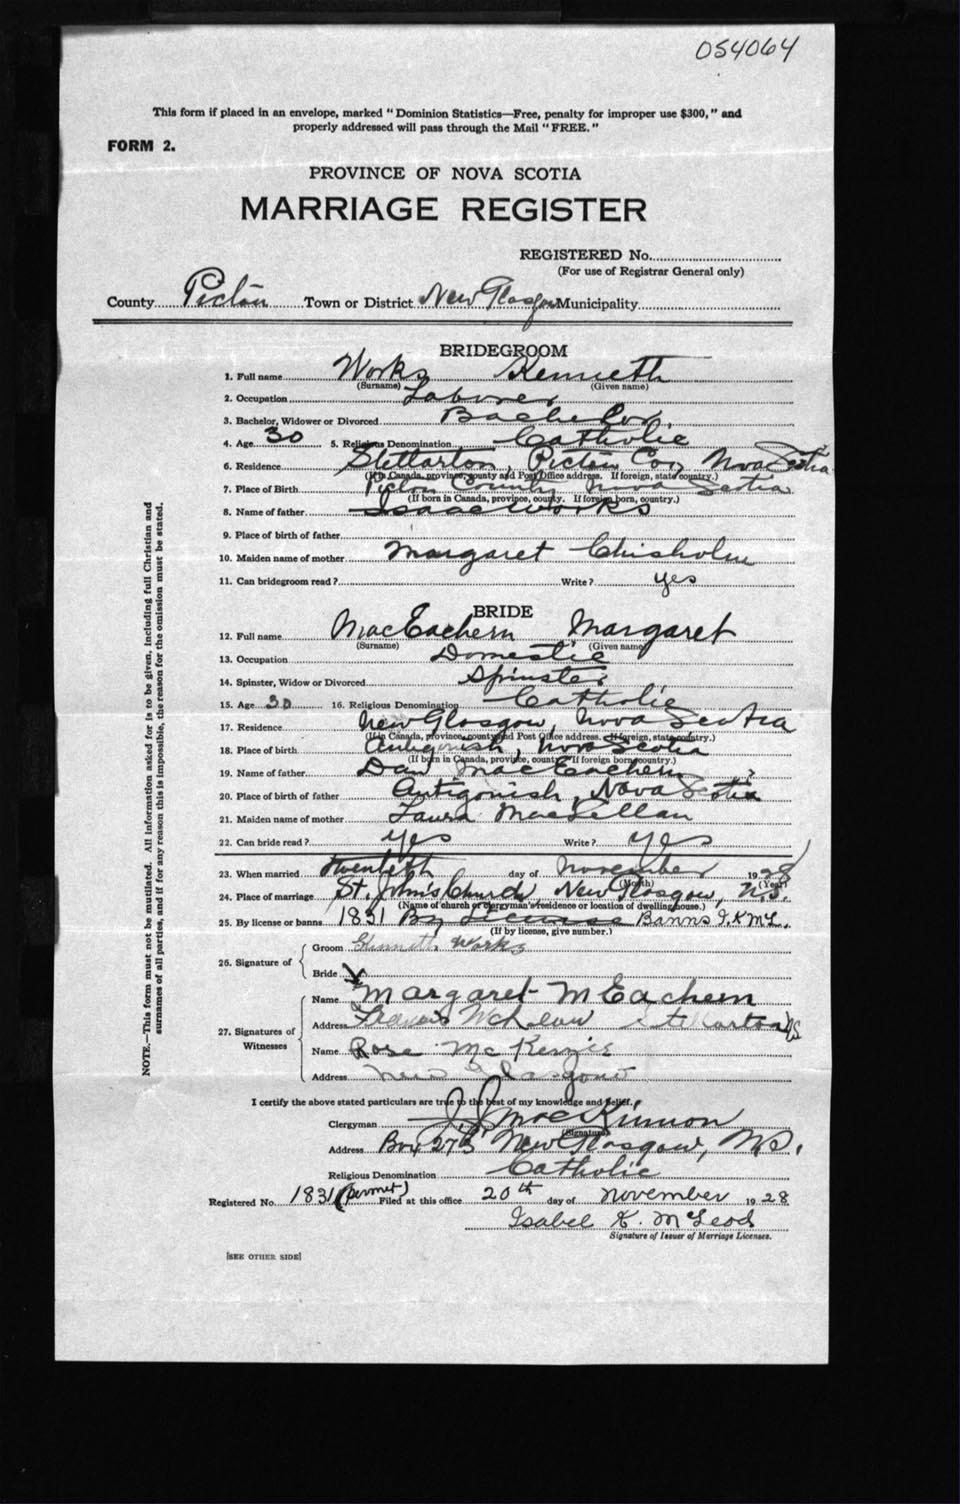 054064
This form if placed in an envelope, marked "Dominion Statistics—Free, penalty for improper use $300," and
properly addressed will pass through the Mail "FREE."
FORM 2.
PROVINCE OF NOVA SCOTIA
MARRIAGE REGISTER
REGISTERED No.
(For use of Registrar General only)
County Pictou Town or District New Glasgow Municipality
BRIDEGROOM
1. Full name Works Kenneth
(Surname) (Given name)
2. Occupation Laborer
3. Bachelor, Widower or Divorced Bachelor
4. Age 30 5. Religious Denomination Catholic
6. Residence Stellarton, Pictou Co., Nova Scotia
(If in Canada, province, county and Post Office address. If foreign, state country.)
7. Place of Birth Pictou County Nova Scotia
(If born in Canada, province, county. If foreign born, country.)
8. Name of father Isaac Works
9. Place of birth of father
10. Maiden name of mother Margaret Chisholm
11. Can bridegroom read? Write? yes
BRIDE
12. Full name MacEachern Margaret
(Surname) (Given name)
13. Occupation Domestic
14. Spinster, Widow or Divorced Spinster
15. Age 30 16. Religious Denomination Catholic
17. Residence New Glasgow, Nova Scotia
(If in Canada, province, county and Post Office address. If foreign, state country.)
18. Place of birth Antigonish, Nova Scotia
(If born in Canada, province, county. If foreign born country.)
19. Name of father Dan MacEachern
20. Place of birth of father Antigonish, Nova Scotia
21. Maiden name of mother Laura MacLellan
22. Can bride read? yes Write? yes
23. When married twentieth day of November 1928
(Month) (Year)
24. Place of marriage St. John's Church, New Glasgow, N.S.
(Name of church or clergyman's residence or location of dwelling house.)
25. By license or banns 1831 By License Banns I.K.M.L.
(If by license, give number.)
26. Signature of
Groom Kenneth Works
Bride X
27. Signatures of Witnesses
Name Margaret McEachern
Address Stellarton NS
Name Rose McKenzie
Address New Glasgow
I certify the above stated particulars are true to the best of my knowledge and belief.
Clergyman J. J. MacKinnon
(Signature)
Address Box 273 New Glasgow, N.S.
Religious Denomination Catholic
Registered No. 1831 (permit) Filed at this office 20th day of November 1928
Isabel K. McLeod
Signature of Issuer of Marriage Licenses.
[SEE OTHER SIDE]
NOTE.—This form must not be mutilated. All information asked for is to be given, including full Christian and
surnames of all parties, and if for any reason this is impossible, the reason for the omission must be stated.